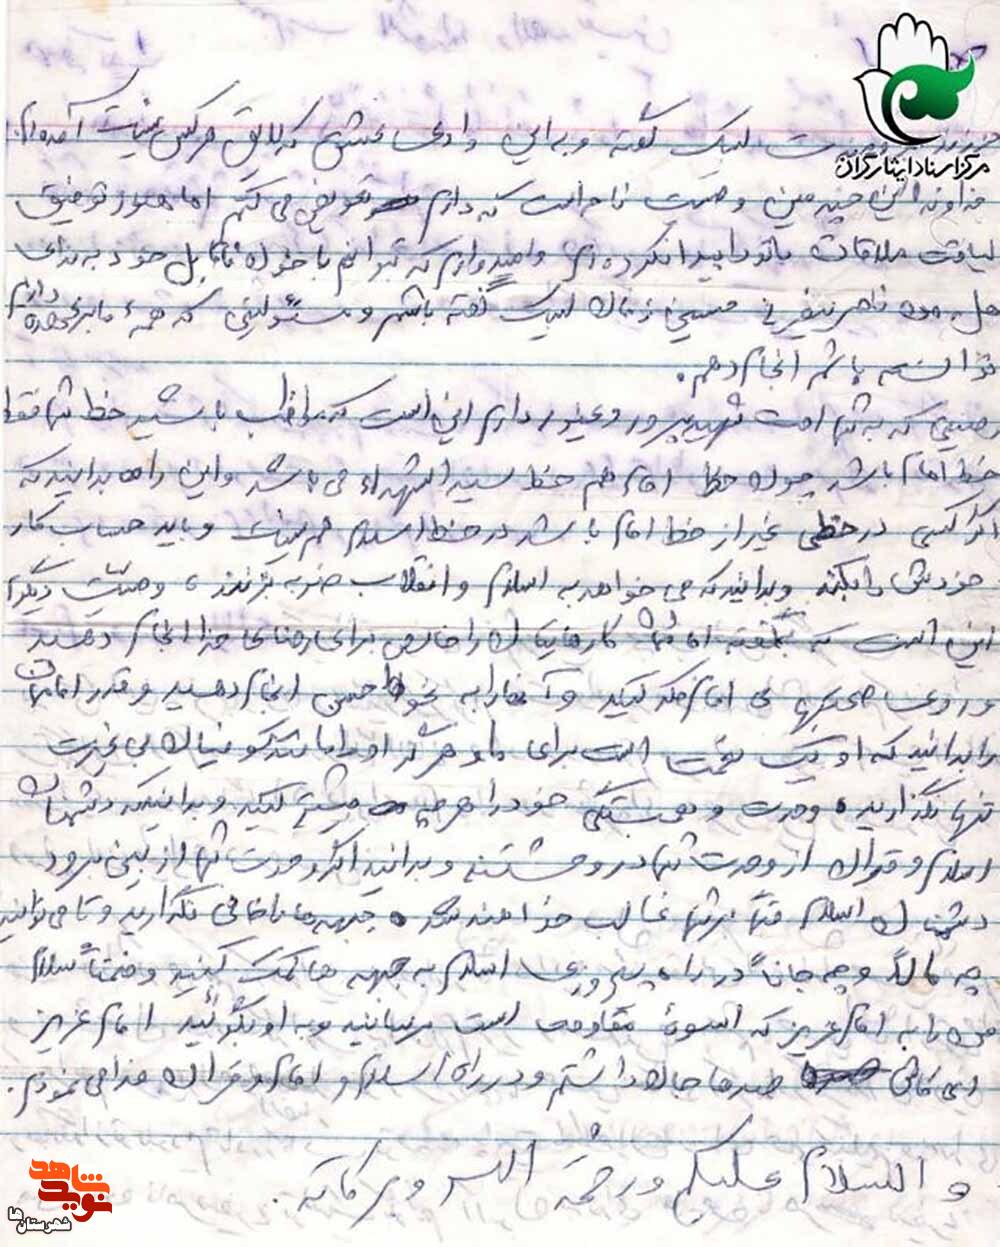 مرکز اسناد ایثارگران
لبیک گفته و به این وادی عشق که لایق هرکس نیست آمده‌ام.
خداوندا این چندمین وصیت نامه است که دارم تعویض می کنم اما هنوز توفیق
لیاقت ملاقات با تو را پیدا نکرده‌ام و امیدوارم که بتوانم با خون ناقابل خود به ندای
هل من ناصر ینصرنی حسینی زمان لبیک گفته باشم و مسئولیتی که همه ما بر عهده داریم
توانسته باشم انجام دهم.
وصیتی که به شما امت شهیدپرور و غیور دارم این است که مواظب باشید خط شما فقط
خط امام باشد چون خط امام هم خط سیدالشهداء می باشد و این را هم بدانید که
اگر کسی در خطی غیر از خط امام باشد در خط اسلام هم نیست و باید حساب کار
خودش را بکند و بدانید که می خواهد به اسلام و انقلاب ضربه بزنند، وصیت دیگرم
این است که به گفته امام کارهایتان را خالص برای رضای خدا انجام دهید
و روی صحبتهای امام فکر کنید و آنها را به نحو احسن انجام دهید و قدر امامتان
را بدانید که او یک نعمت است برای ما و هرگز او را مانند کوفیان بی غیرت
تنها نگذارید، وحدت و همبستگی خود را هرچه بیشتر کنید و بدانید که دشمنان
اسلام و قرآن از وحدت شما در وحشتند و بدانید اگر وحدت شما از بین برود
دشمنان اسلام حتماً بر شما غالب خواهند شد، جبهه ها را خالی نگذارید و تا می توانید
چه مالاً و چه جاناً در راه پیروزی اسلام به جبهه ها کمک کنید و ضمناً سلام
مرا به امام عزیز که اسوهٔ مقاومت است برسانید و به او بگوئید امام عزیز
ای کاش صدها جان داشتم و در راه اسلام و امام و قرآن فدا می نمودم.
والسلام علیکم و رحمة الله و برکاته.
نوید شاهد
شهرستان‌ها